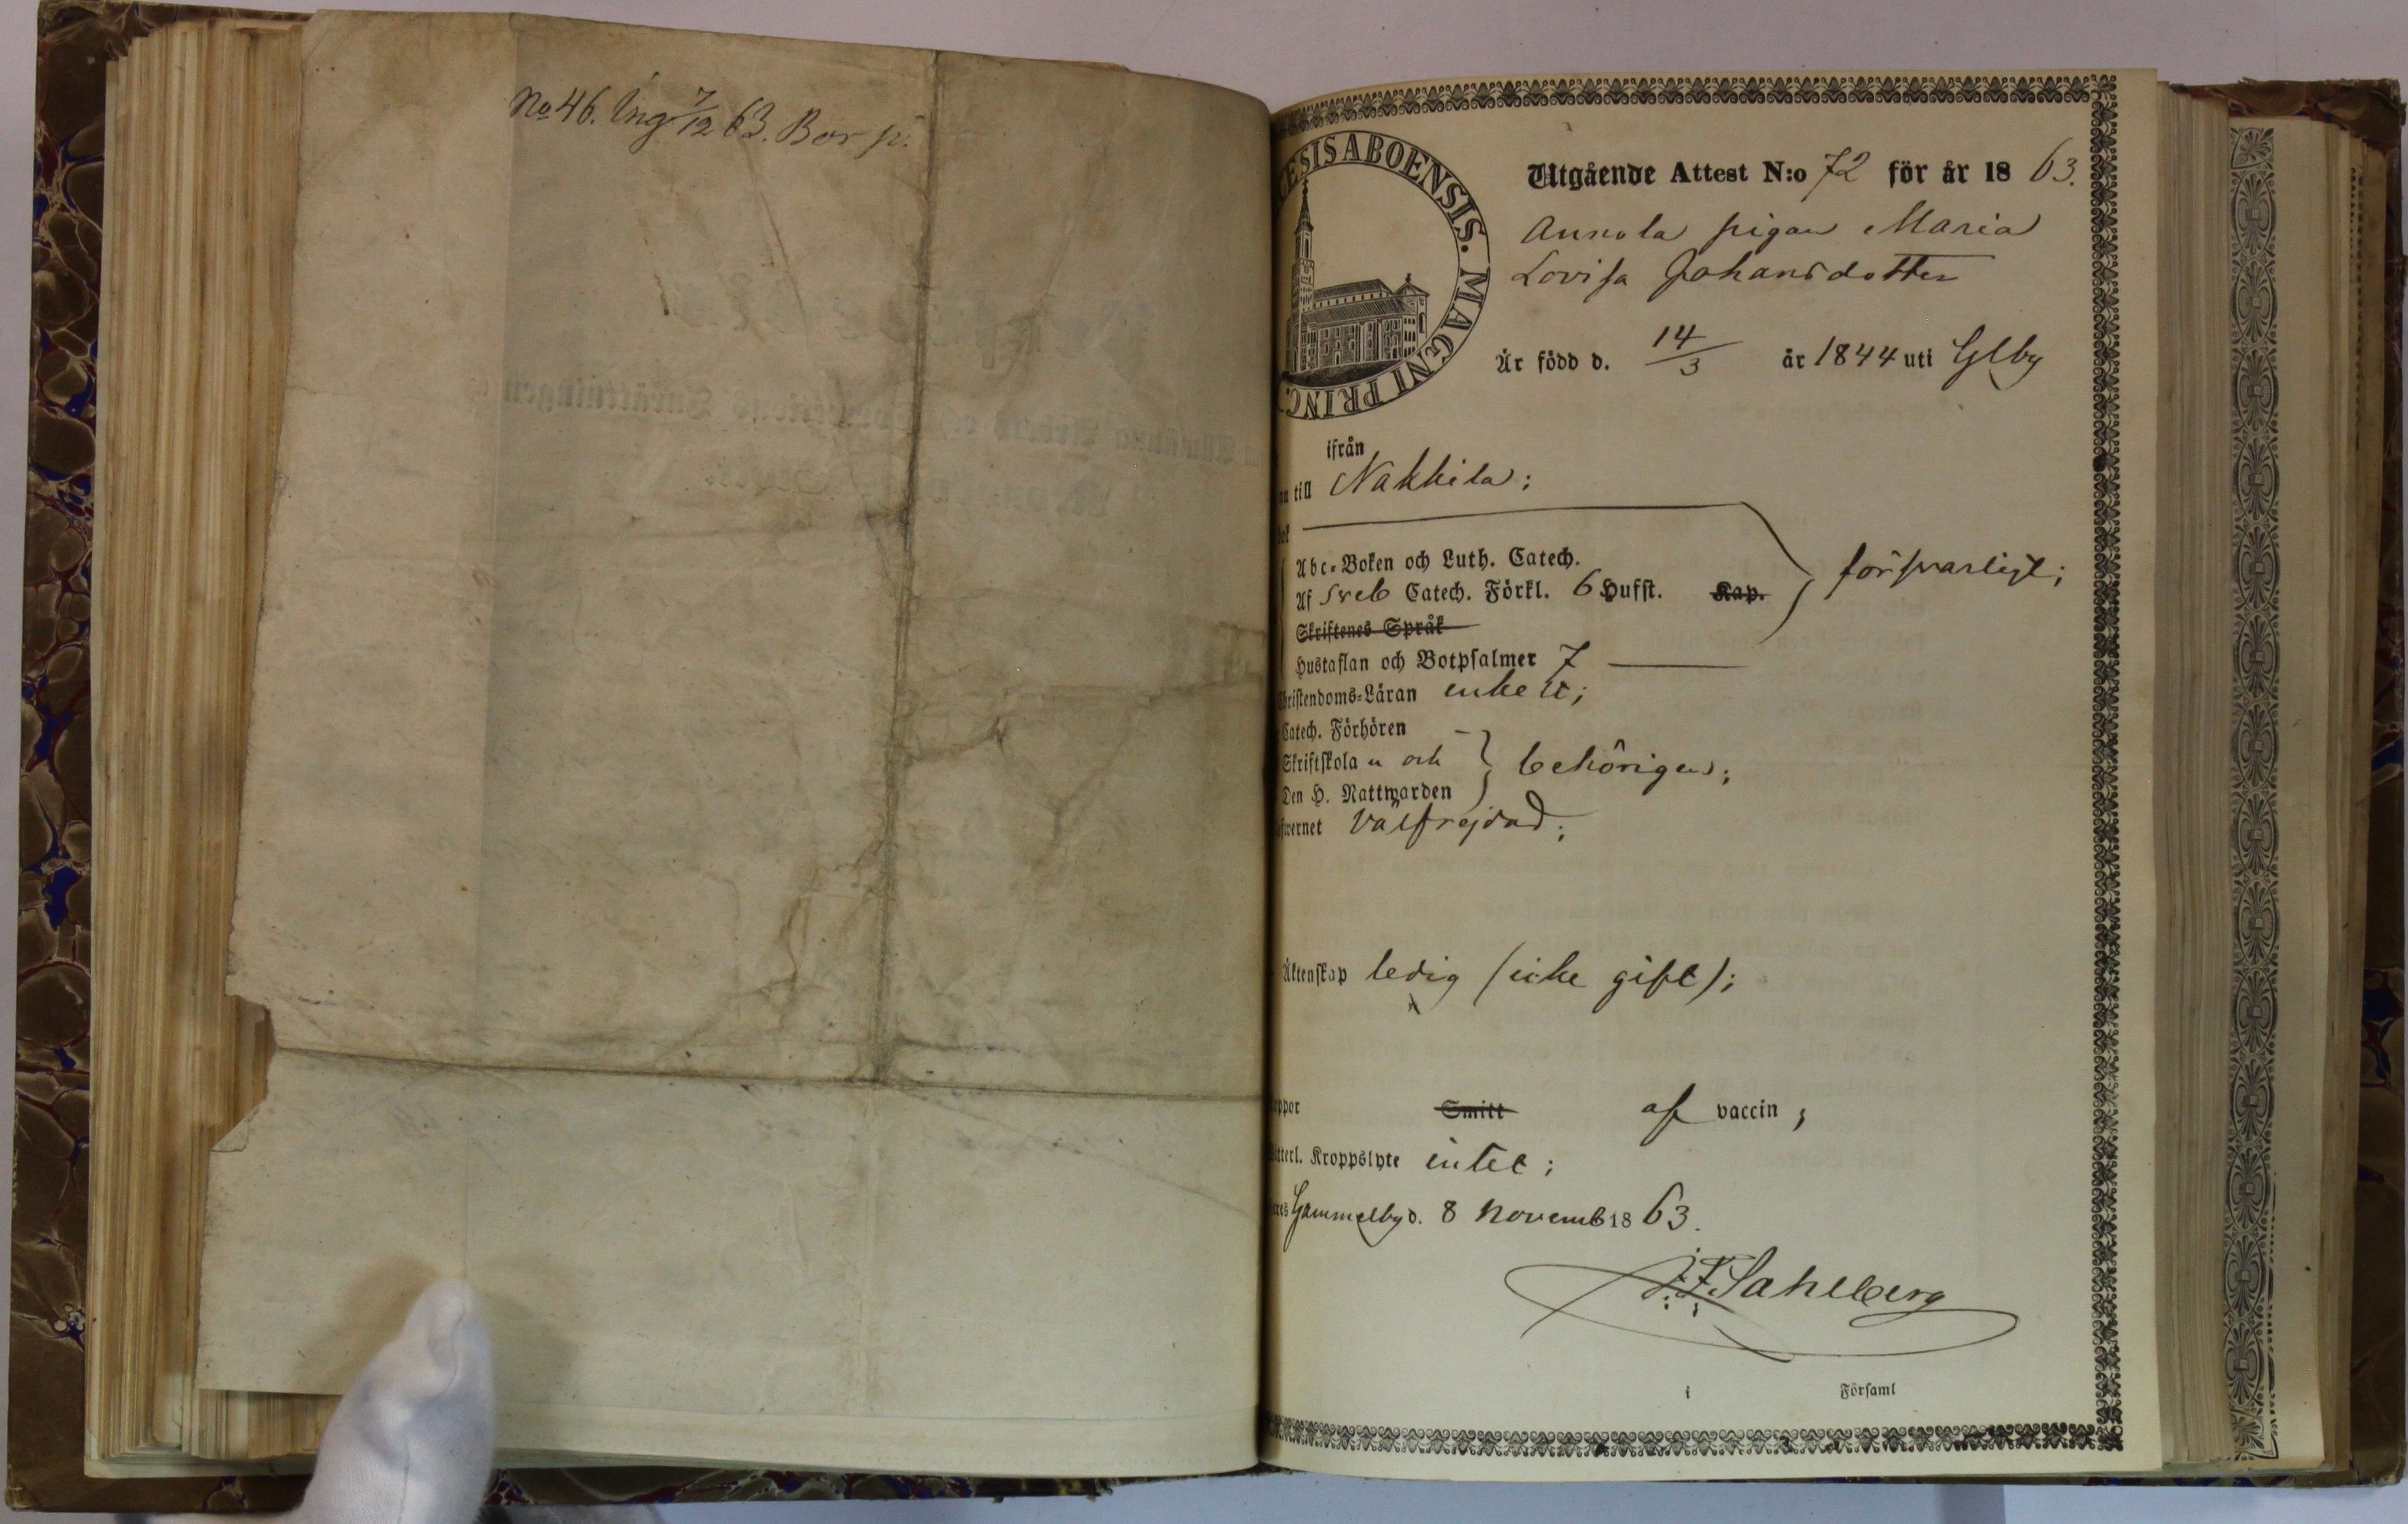 No 46. Ing 7/12 63. Bor p.
ESISABOENSIS. MAGNI PRINC.
Utgående Attest N:o 72 för år 18 63.
Annola pigan Maria
Lovisa Johansdotter
Är född d. 14/3 år 1844 uti Glby
ifrån
nu till Nakkila;
Abc-Boken och Luth. Catech.
Af Sveb Catech. Förkl. 6 Hufst. Kap.
försvarligt;
Skriftenes Språk
Hustaflan och Botpsalmer 7
Christendoms-Läran enkelt;
Catech. Förhören
Skriftskola n och
behörigen;
Den H. Nattwarden
fwernet välfrejdad;
Äktenskap ledig (icke gift);
oppor Smitt af vaccin;
itterl. Kroppslyte intet;
Gammelby d. 8 Novemb 18 63.
J. F. Sahlberg
i Församl